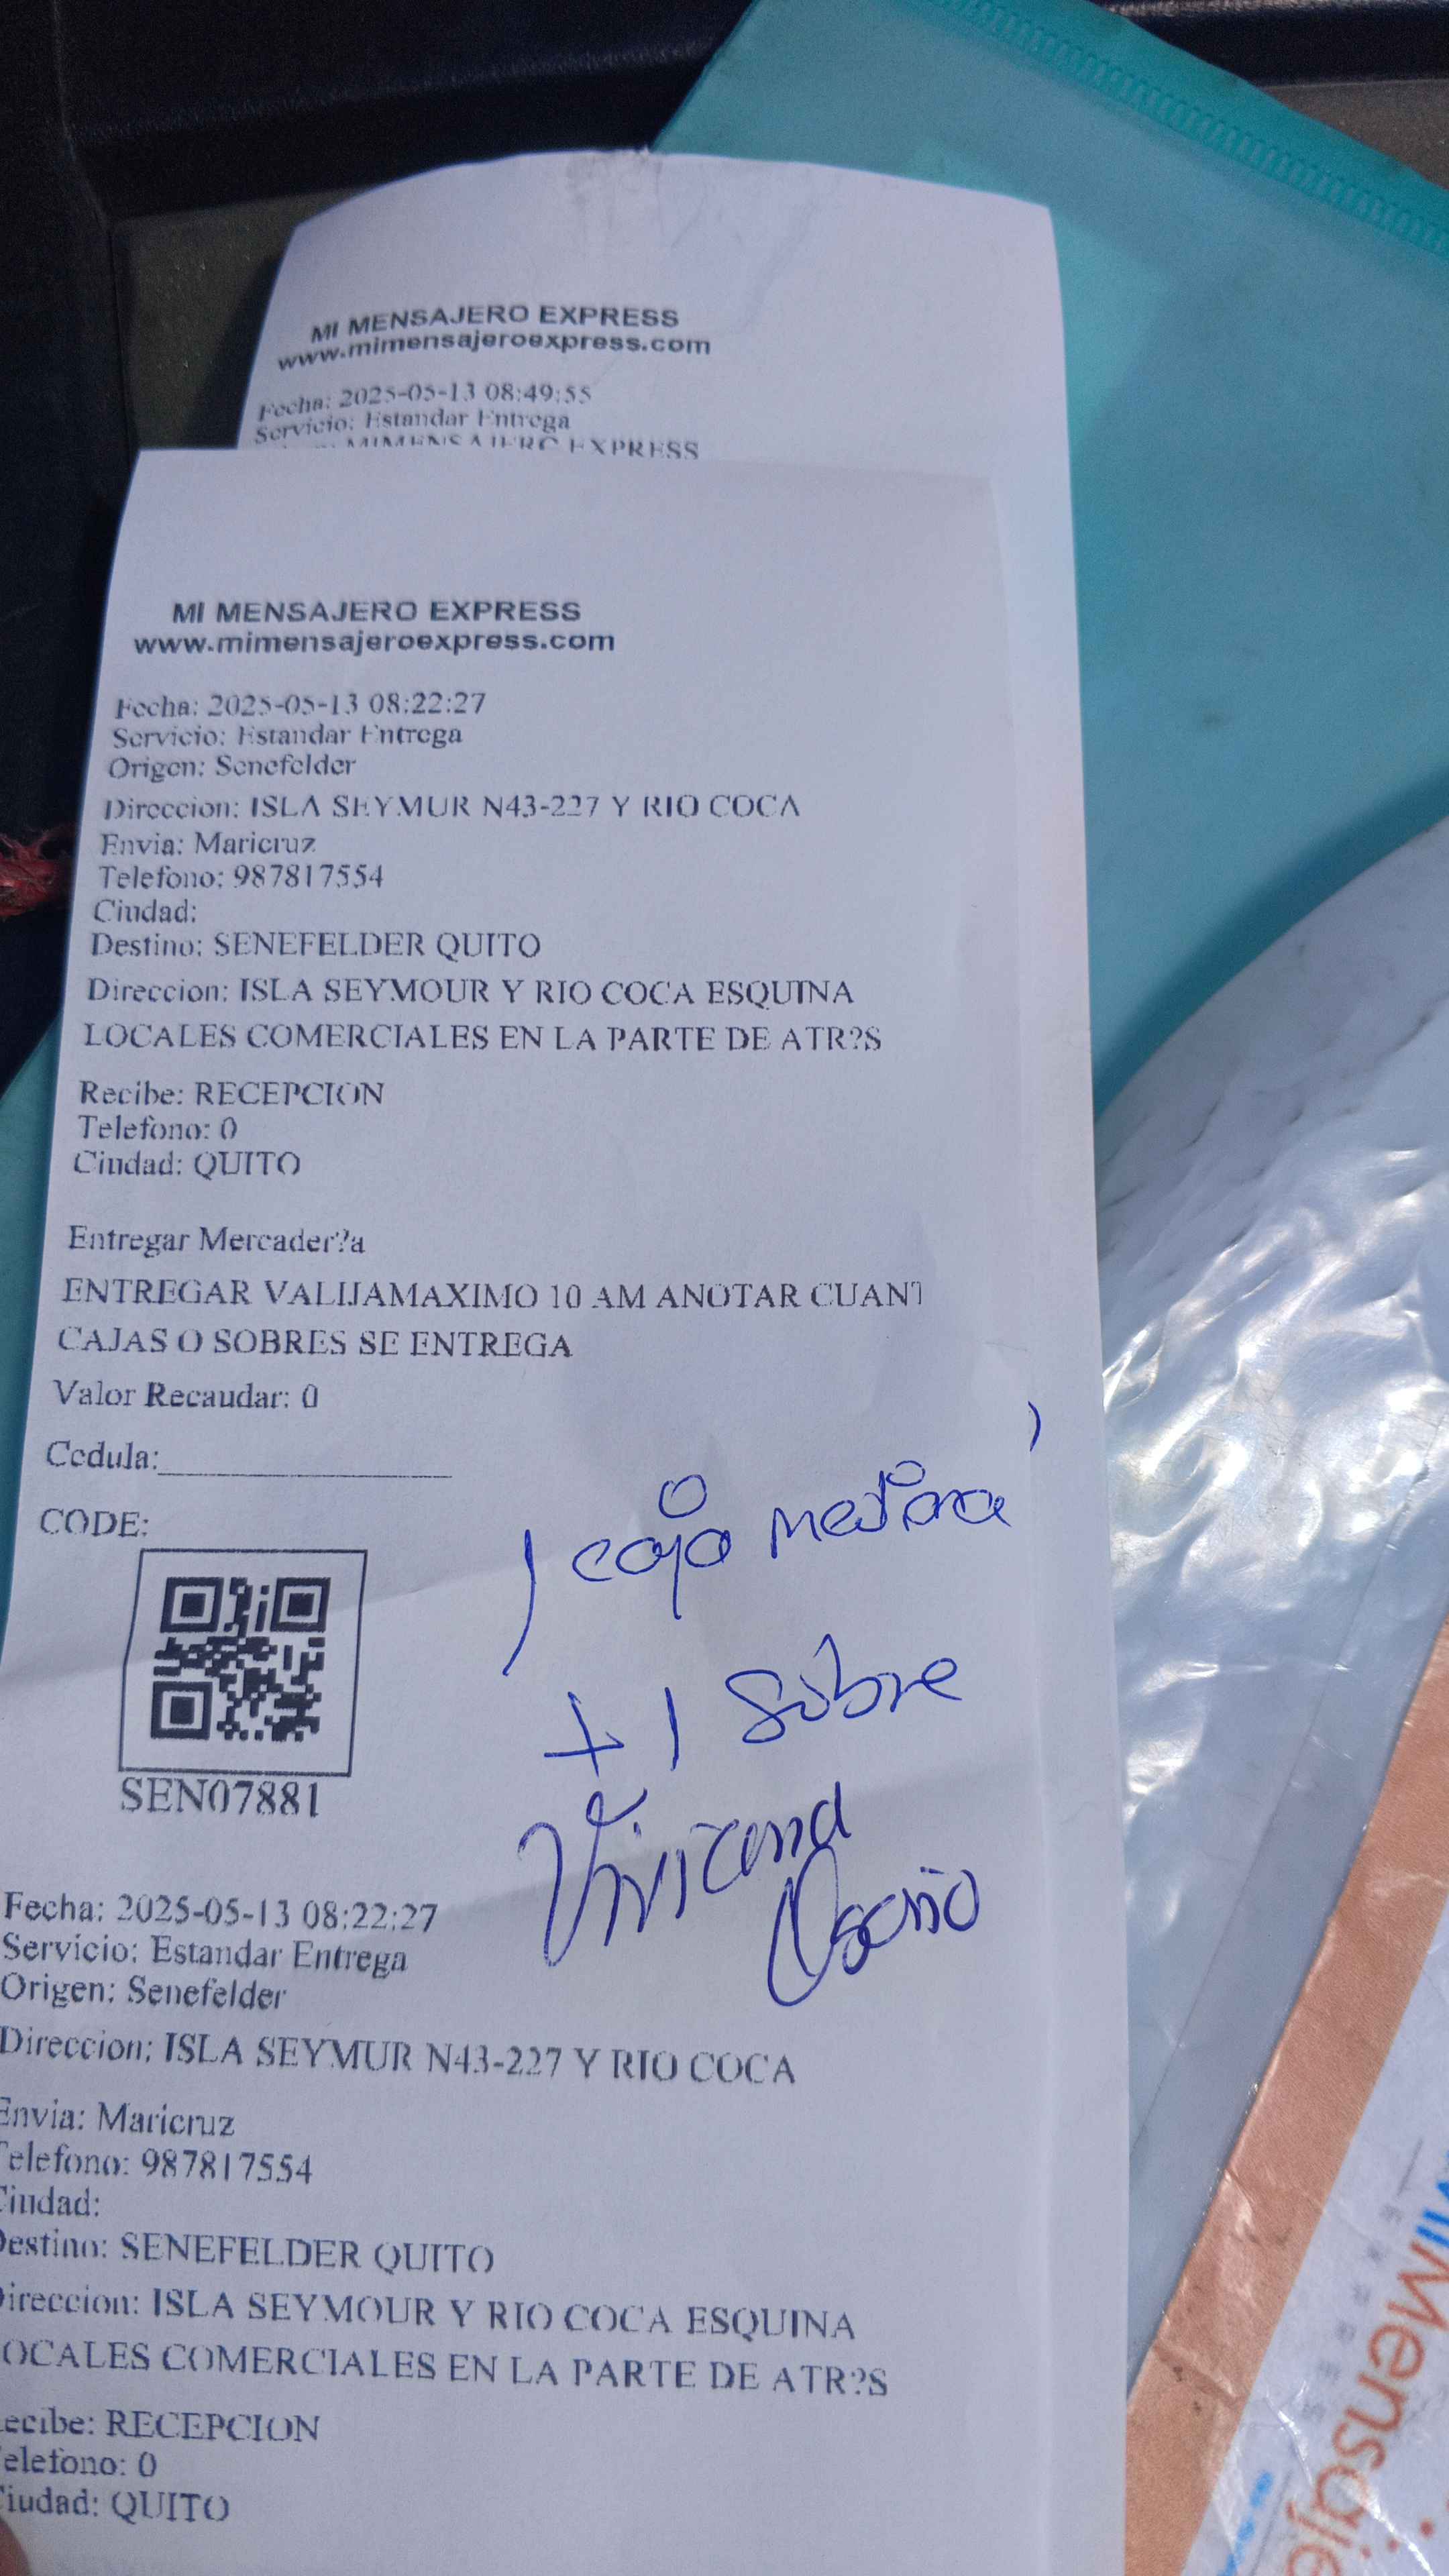 MI MENSAJERO EXPRESS
www.mimensajeroexpress.com
Fecha: 2025-05-13 08:49:55
Servicio: Estandar Entrega
MIMENSAJERO EXPRESS
MI MENSAJERO EXPRESS
www.mimensajeroexpress.com
Fecha: 2025-05-13 08:22:27
Servicio: Estandar Entrega
Origen: Senefelder
Direccion: ISLA SEYMUR N43-227 Y RIO COCA
Envia: Maricruz
Telefono: 987817554
Ciudad:
Destino: SENEFELDER QUITO
Direccion: ISLA SEYMOUR Y RIO COCA ESQUINA
LOCALES COMERCIALES EN LA PARTE DE ATR?S
Recibe: RECEPCION
Telefono: 0
Ciudad: QUITO
Entregar Mercader?a
ENTREGAR VALIJAMAXIMO 10 AM ANOTAR CUANT
CAJAS O SOBRES SE ENTREGA
Valor Recaudar: 0
Cedula:
CODE:
1 caja mediana
+ 1 Sobre
Viviana
Osorio
SEN07881
Fecha: 2025-05-13 08:22:27
Servicio: Estandar Entrega
Origen: Senefelder
Direccion: ISLA SEYMUR N43-227 Y RIO COCA
Envia: Maricruz
Telefono: 987817554
Ciudad:
Destino: SENEFELDER QUITO
Direccion: ISLA SEYMOUR Y RIO COCA ESQUINA
LOCALES COMERCIALES EN LA PARTE DE ATR?S
Recibe: RECEPCION
Telefono: 0
Ciudad: QUITO
MiMensaje